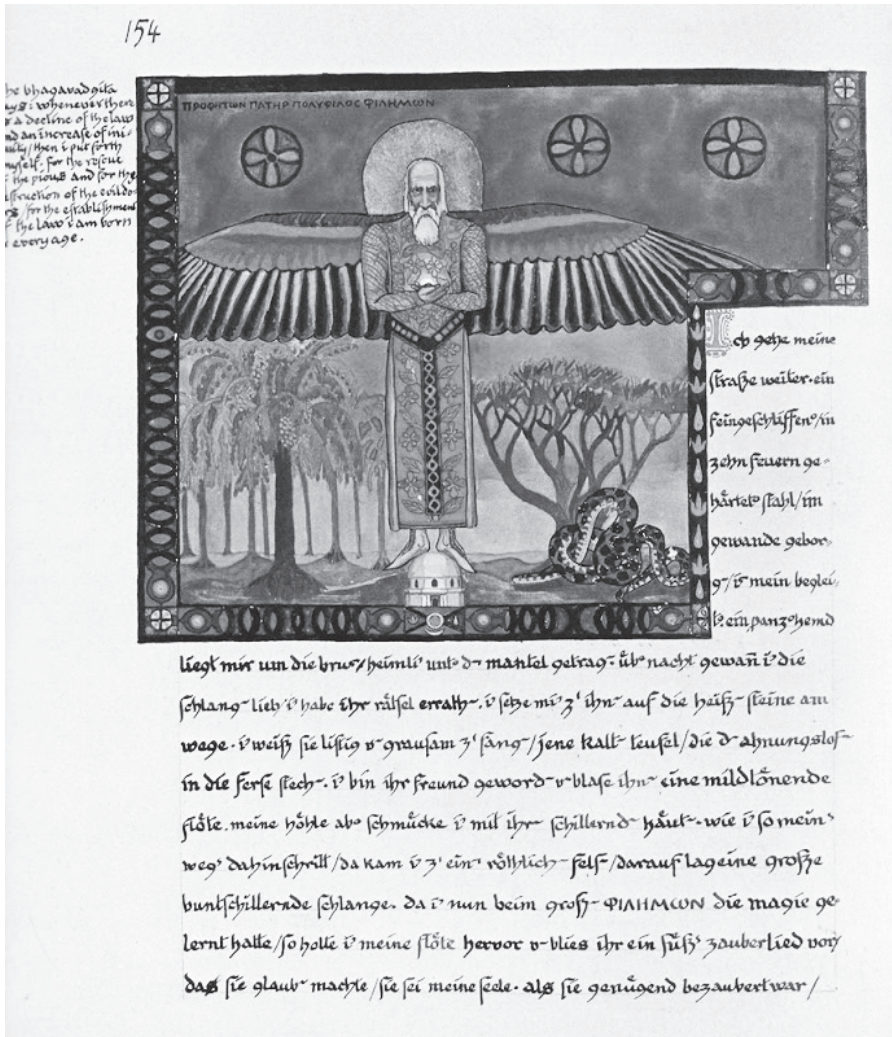 154
he bhagavadgita
ys: whenever there
a decline of the law
nd an increase of ini-
uity/then i put forth
myself. for the rescue
the pious and for the
struction of the evildo-
rs/for the establishment
f the law i am born
every age.
ΠΡΟΦΗΤΩΝ ΠΑΤΗΡ ΠΟΛΥΦΙΛΟϹ ΦΙΛΗΜΩΝ
Ich gehe meine
straße weiter. ein
feingeschliffen°/in
zehn feuern ge-
härtet° stahl/im
gewande gebor-
g-/ist mein beglei-
ein panz°hemd
liegt mir um die brust/heimli unt° d- mantel getrag-. üb° nacht gewañ i die
schlang- lieb/i habe ihr rätsel errath-. i setze mi z' ihn- auf die heiß- steine am
wege. i weiß sie listig u- grausam z' fang-/jene kalt- teufel/die d- ahnungslos-
in die ferse stech-. i bin ihr freund geword- u- blase ihn- eine mildtönende
flöte. meine höhle ab° schmücke i mit ihr- schillernd- häut-. wie i so mein'
weg' dahinschritt/da kam i z' ein- röthlich- fels/darauf lag eine große
buntschillernde schlange. da i nun beim groß- ΦΙΛΗΜΩΝ die magie ge-
lernt hatte/so holte i meine flöte hervor u- blies ihr ein süß' zauberlied vor/
das sie glaub- machte/sie sei meine seele. als sie genügend bezaubert war/